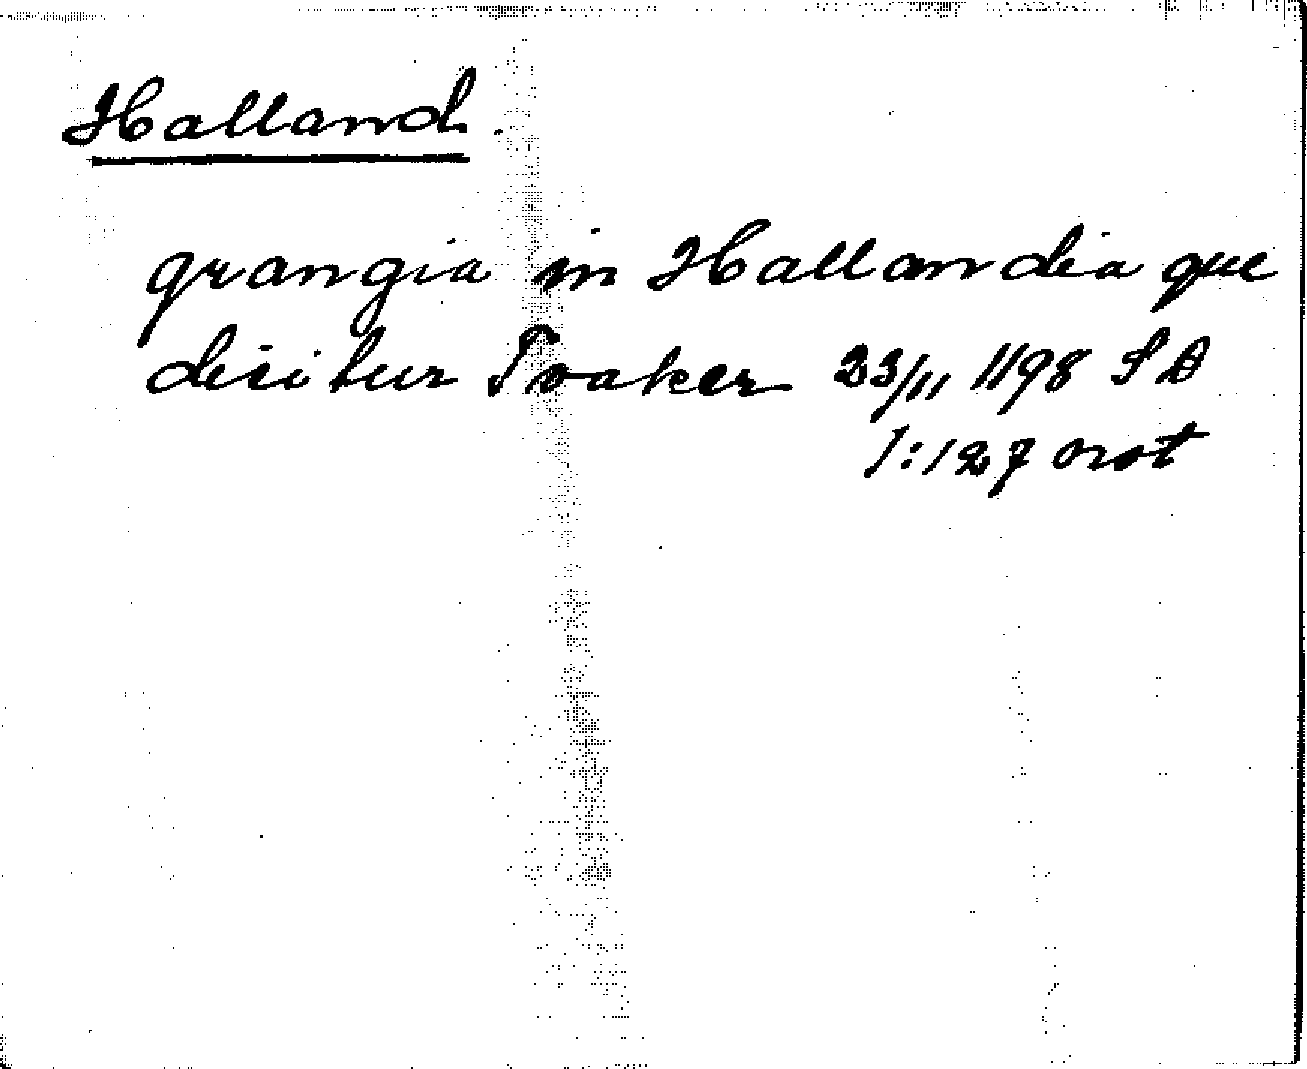 Halland.
grangia in Hallandia que
dicitur Tvaker 23/11 1198 S D
1:127 not